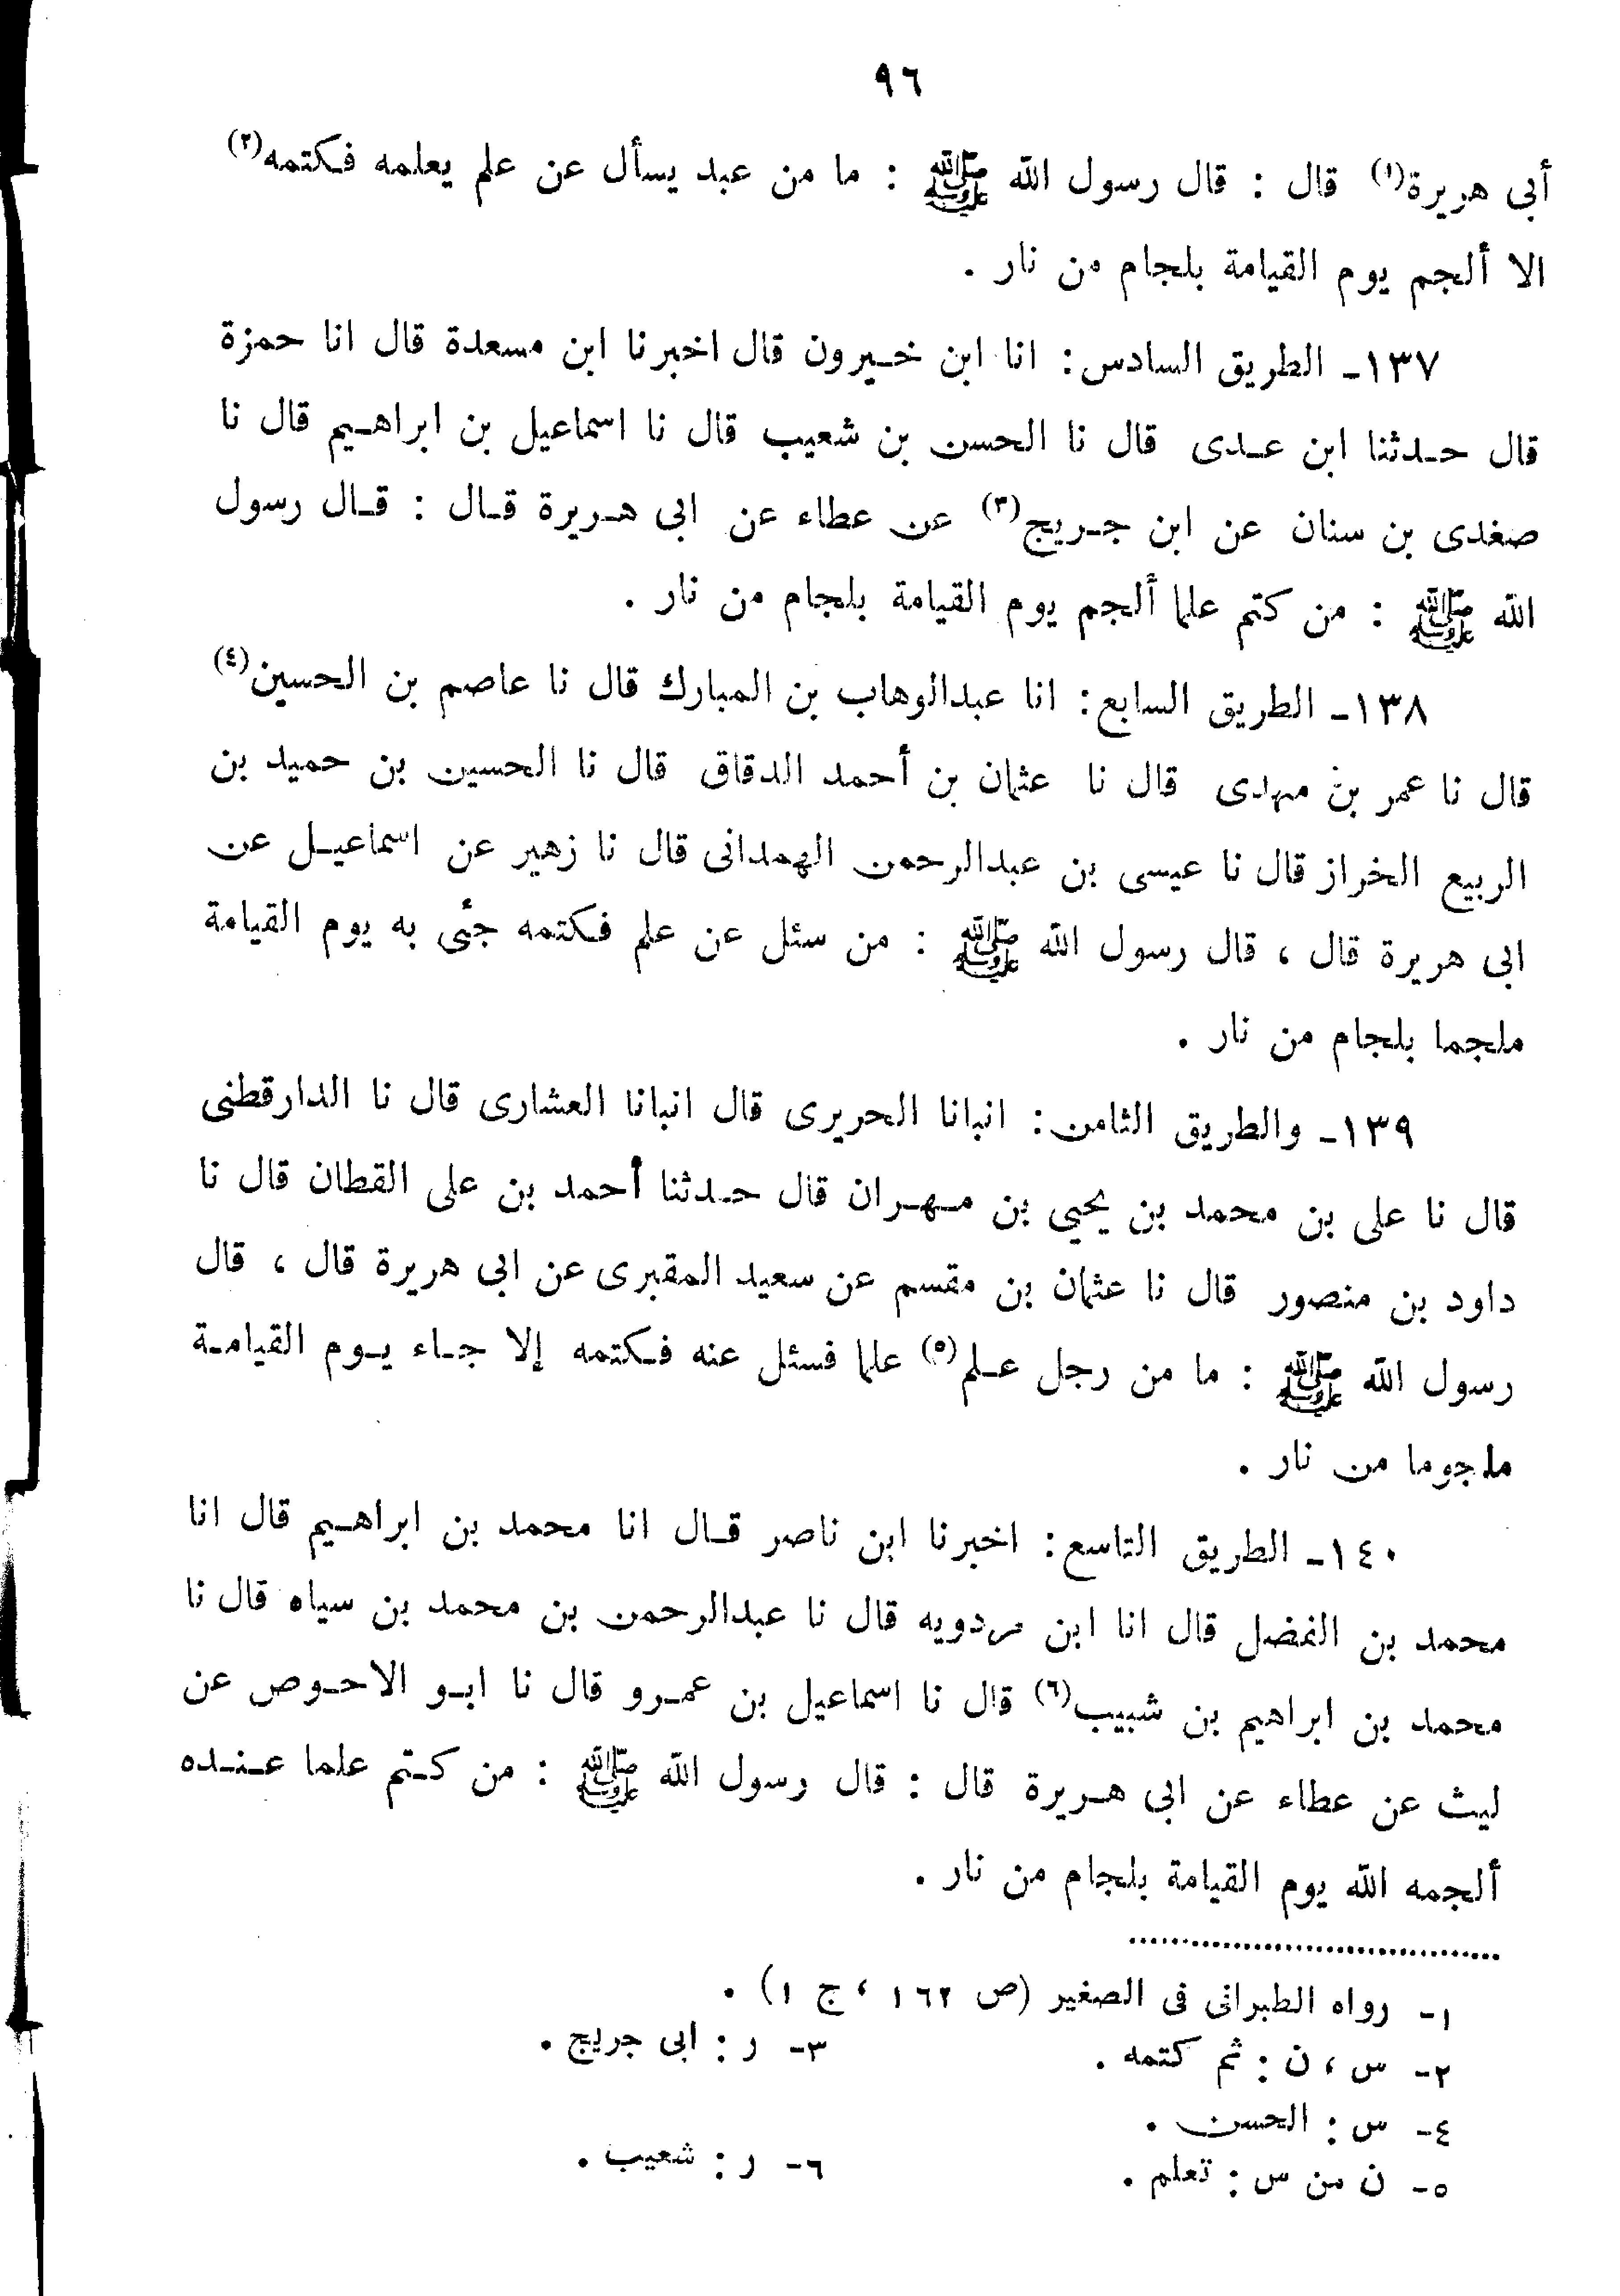 ٩٦
أبى هريرة(١) قال : قال رسول الله ﷺ : ما من عبد يسأل عن علم يعلمه فكتمه(٢)
الا ألجم يوم القيامة بلجام من نار .
١٣٧ـ الطريق السادس: انا ابن خيرون قال اخبرنا ابن مسعدة قال انا حمزة
قال حدثنا ابن عدى قال نا الحسن بن شعيب قال نا اسماعيل بن ابراهيم قال نا
صغدى بن سنان عن ابن جريج(٣) عن عطاء عن ابى هريرة قال : قال رسول
الله ﷺ : من كتم علما ألجم يوم القيامة بلجام من نار .
١٣٨ـ الطريق السابع: انا عبدالوهاب بن المبارك قال نا عاصم بن الحسين(٤)
قال نا عمر بن مهدى قال نا عثمان بن أحمد الدقاق قال نا الحسين بن حميد بن
الربيع الخراز قال نا عيسى بن عبدالرحمن الهمدانى قال نا زهير عن اسماعيل عن
ابى هريرة قال ، قال رسول الله ﷺ : من سئل عن علم فكتمه جئى به يوم القيامة
ملجما بلجام من نار .
١٣٩ـ والطريق الثامن: انبانا الحريرى قال انبانا العشارى قال نا الدارقطنى
قال نا على بن محمد بن يحيي بن مهران قال حدثنا أحمد بن على القطان قال نا
داود بن منصور قال نا عثمان بن مقسم عن سعيد المقبرى عن ابى هريرة قال ، قال
رسول الله ﷺ : ما من رجل علم(٥) علما فسئل عنه فكتمه إلا جاء يوم القيامة
ملجوما من نار .
١٤٠ـ الطريق التاسع: اخبرنا ابن ناصر قال انا محمد بن ابراهيم قال انا
محمد بن الفضل قال انا ابن مردويه قال نا عبدالرحمن بن محمد بن سياه قال نا
محمد بن ابراهيم بن شبيب(٦) قال نا اسماعيل بن عمرو قال نا ابو الاحوص عن
ليث عن عطاء عن ابى هريرة قال : قال رسول الله ﷺ : من كتم علما عنده
ألجمه الله يوم القيامة بلجام من نار .
١ـ رواه الطبرانى فى الصغير (ص ١٦٢ ، ج ١) .
٢ـ س ، ن : ثم كتمه . ٣ـ ر : ابى جريج .
٤ـ س : الحسن .
٥ـ ن من س : تعلم . ٦ـ ر : شعيب .